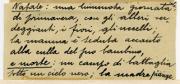 Natale: una luminosa giornata
di primavera, con gli alberi ver-
deggianti, i fiori, gli uccelli,
e la mamma è seduta accanto
alla culla del suo bambino,
e morte: un campo di battaglia
sotto un cielo nero; la madre piange